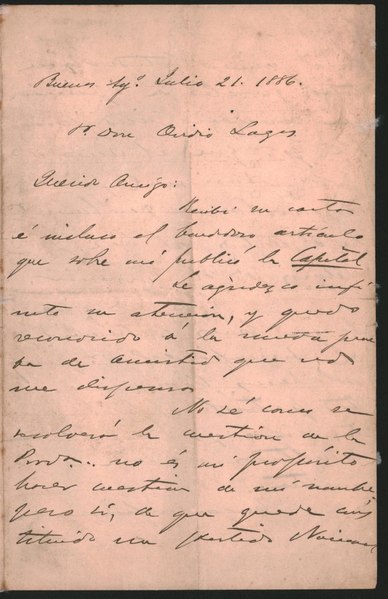 Buenos Ayˢ Julio 21. 1886.
Sʳ Don Ovidio Lagos
Querido Amigo:
Recibi su carta
é incluso el bondadoso articulo
que sobre mi publicó la Capital
Le agradezco infi
nito su atención, y quedo
reconocido á la nueva prue
ba de amistad que vd
me dispensa
No sé como se
resolverá la cuestion de la
no és mi propósito
hacer cuestion de mi nombre
pero si, de que quede cons
tituido un partido Nacional